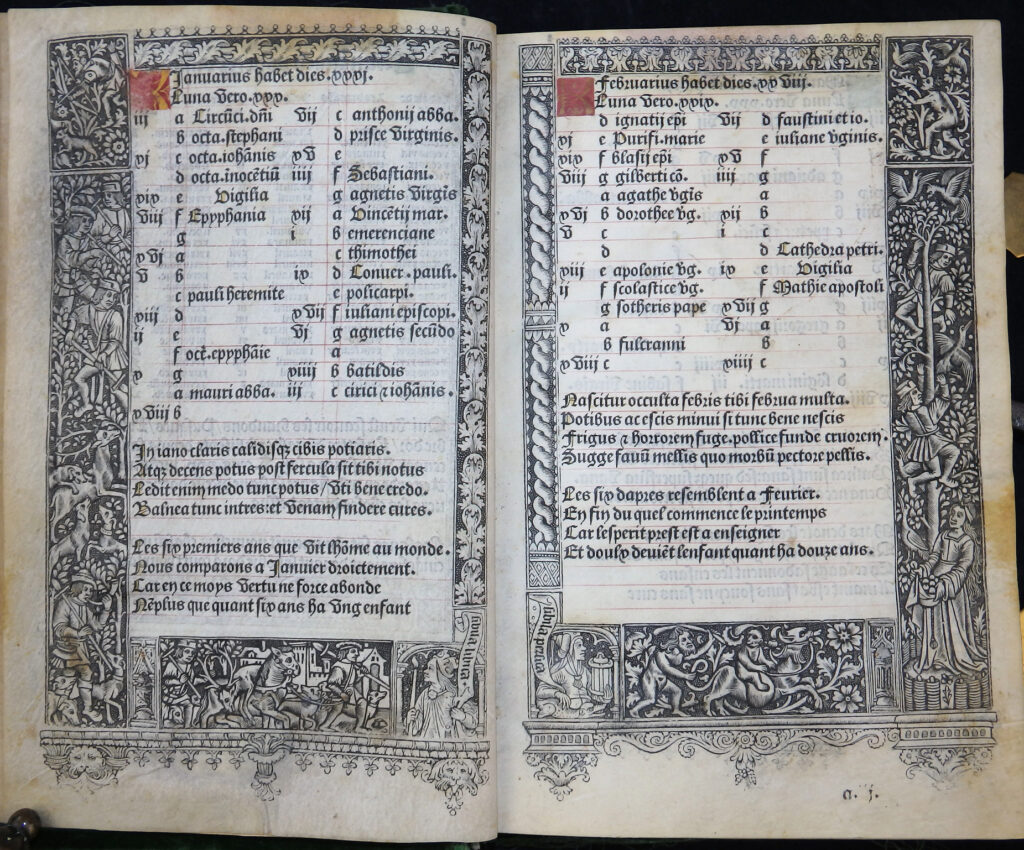 Januarius habet dies.xxxj.
Luna vero.xxx.
iij a Circūci.dn̄i
b octa.stephani
xj c octa.iohānis
d octa.inocētiū
xix e Vigilia
viij f Epyphania
g
xvj a
v b
c pauli heremite
xiij d
ij e
f oct̄.epyphāie
x g
a mauri abba.
xviij b
vij c anthonij abba.
d prisce virginis.
xv e
iiij f Sebastiani.
g agnetis virgīs
xij a Vincētij mar.
i b emerenciane
c thimothei
ix d Conuer.pauli.
e policarpi.
xvij f iuliani episcopi.
vj g agnetis secūdo
a
xiiij b batildis
iij c cirici ⁊ iohānis.
In iano claris calidisqꝫ cibis potiaris.
Atqꝫ decens potus post fercula sit tibi notus
Ledit enim medo tunc potus / vti bene credo.
Balnea tunc intres: et venam findere cures.
Les six premiers ans que vit lhōme au monde.
Nous comparons a Januier droictement.
Car en ce moys vertu ne force abonde
Nēplus que quant six ans ha vng enfant
sibila
Februarius habet dies.xx viij.
Luna vero.xxix.
d ignatij ep̄i
xj e Purifi.marie
xix f blasij ep̄i
viij g gilberti cō.
a agathe vgīs
xvj b dorothee vg.
v c
d
xiij e apolonie vg.
ij f scolastice vg.
g sotheris pape
x a
b fulcranni
xviij c
vij d faustini et io.
e iuliane vginis.
xv f
iiij g
a
xij b
i c
d Cathedra petri.
ix e Vigilia
f Mathie apostoli
xvij g
vj a
b
xiiij c
Nascitur occulta febris tibi februa multa.
Potibus ac escis minui si tunc bene nescis
Frigus ⁊ horrorem fuge.pollice funde cruorem.
Sugge fauū mellis quo morbū pectore pellis.
Les six dapres resemblent a Feurier.
En fin du quel commence le printemps
Car lesperit prest est a enseigner
Et doulx deuiēt lenfant quant ha douze ans.
sibila persica
a. j.